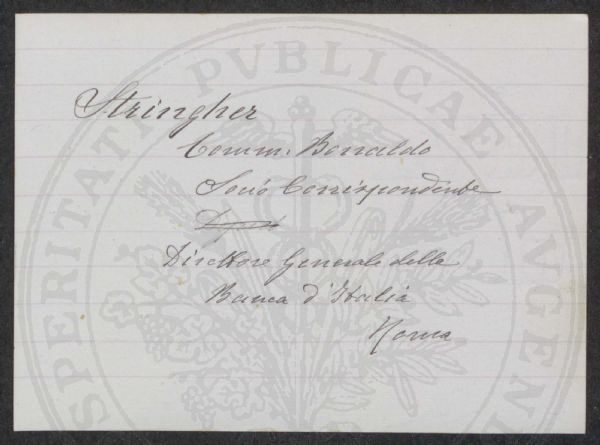 Stringher
Comm. Bonaldo
Socio Corrispondente
Direttore Generale della
Banca d'Italia
Roma
PROSPERITATI PVBLICAE AVGENDAE